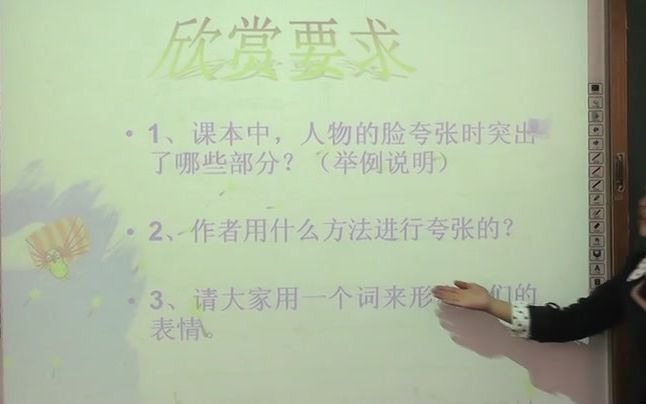 欣赏要求
• 1、课本中，人物的脸夸张时突出
了哪些部分？（举例说明）
• 2、作者用什么方法进行夸张的？
• 3、请大家用一个词来形 们的
表情。